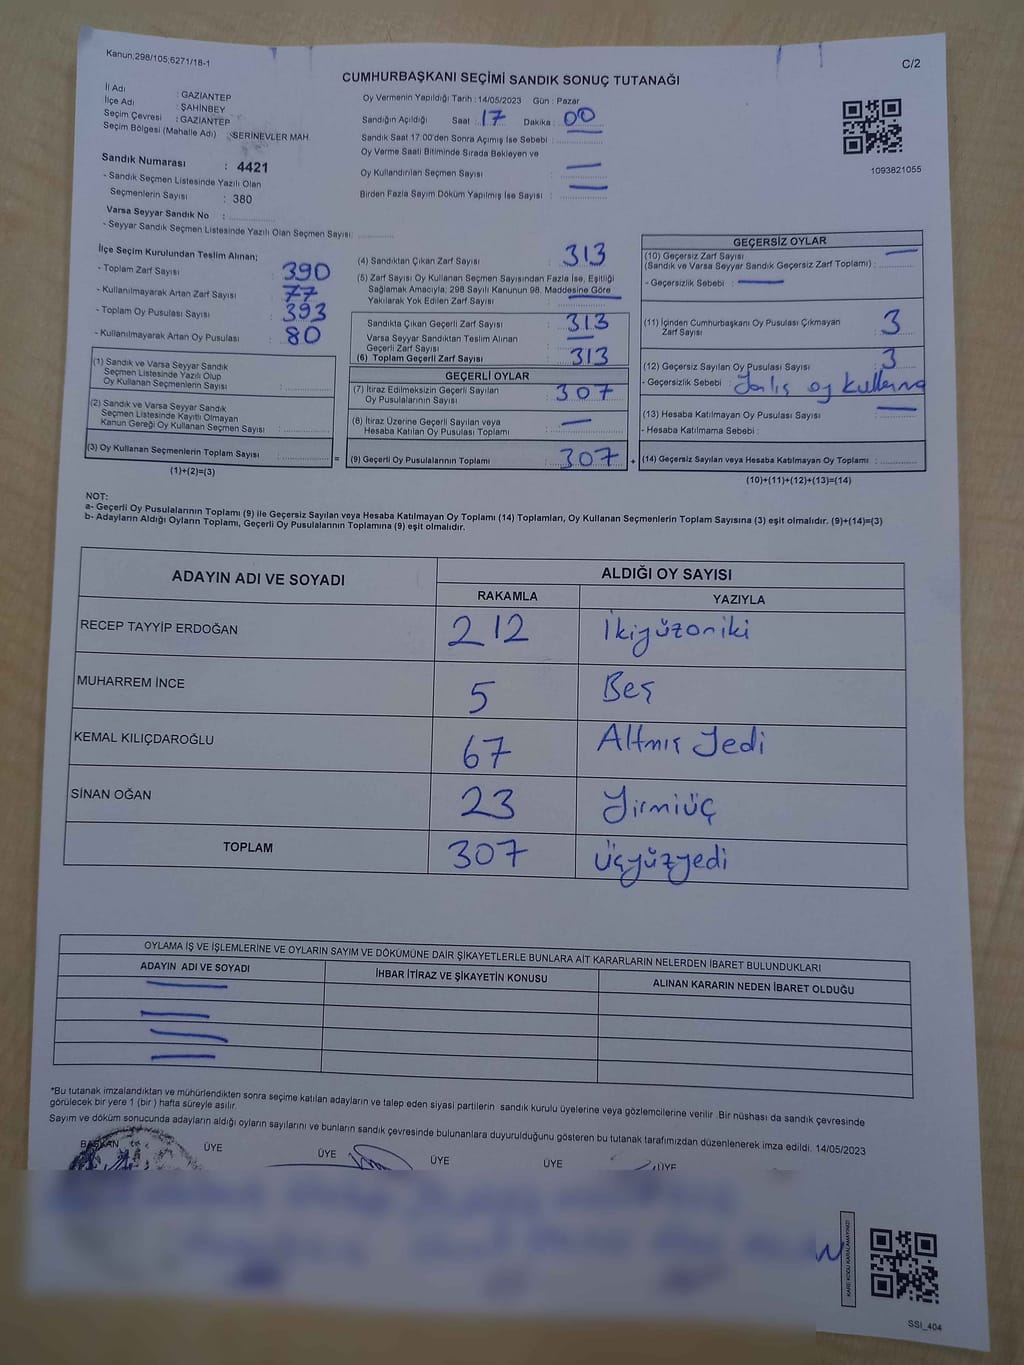 Kanun;298/105,6271/18-1
C/2
CUMHURBAŞKANI SEÇİMİ SANDIK SONUÇ TUTANAĞI
İl Adı : GAZİANTEP
İlçe Adı : ŞAHİNBEY
Seçim Çevresi : GAZİANTEP
Seçim Bölgesi (Mahalle Adı) : SERİNEVLER MAH.
Sandık Numarası : 4421
- Sandık Seçmen Listesinde Yazılı Olan
Seçmenlerin Sayısı : 380
Varsa Seyyar Sandık No :
- Seyyar Sandık Seçmen Listesinde Yazılı Olan Seçmen Sayısı:
Oy Vermenin Yapıldığı Tarih : 14/05/2023 Gün : Pazar
Sandığın Açıldığı Saat : 17 Dakika : 00
Sandık Saat 17:00'den Sonra Açımış İse Sebebi :
Oy Verme Saati Bitiminde Sırada Bekleyen ve
Oy Kullandırılan Seçmen Sayısı : —
Birden Fazla Sayım Döküm Yapılmış İse Sayısı : —
1093821055
İlçe Seçim Kurulundan Teslim Alınan;
- Toplam Zarf Sayısı : 390
- Kullanılmayarak Artan Zarf Sayısı : 77
- Toplam Oy Pusulası Sayısı : 393
- Kullanılmayarak Artan Oy Pusulası : 80
(1) Sandık ve Varsa Seyyar Sandık
Seçmen Listesinde Yazılı Olup
Oy Kullanan Seçmenlerin Sayısı :
(2) Sandık ve Varsa Seyyar Sandık
Seçmen Listesinde Kayıtlı Olmayan
Kanun Gereği Oy Kullanan Seçmen Sayısı :
(3) Oy Kullanan Seçmenlerin Toplam Sayısı :
(1)+(2)=(3)
(4) Sandıktan Çıkan Zarf Sayısı : 313
(5) Zarf Sayısı Oy Kullanan Seçmen Sayısından Fazla İse, Eşitliği
Sağlamak Amacıyla; 298 Sayılı Kanunun 98. Maddesine Göre
Yakılarak Yok Edilen Zarf Sayısı : —
Sandıkta Çıkan Geçerli Zarf Sayısı : 313
Varsa Seyyar Sandıktan Teslim Alınan
Geçerli Zarf Sayısı : —
(6) Toplam Geçerli Zarf Sayısı : 313
GEÇERLİ OYLAR
(7) İtiraz Edilmeksizin Geçerli Sayılan
Oy Pusulalarının Sayısı : 307
(8) İtiraz Üzerine Geçerli Sayılan veya
Hesaba Katılan Oy Pusulası Toplamı : —
= (9) Geçerli Oy Pusulalarının Toplamı : 307 +
GEÇERSİZ OYLAR
(10) Geçersiz Zarf Sayısı
(Sandık ve Varsa Seyyar Sandık Geçersiz Zarf Toplamı) : —
- Geçersizlik Sebebi : —
(11) İçinden Cumhurbaşkanı Oy Pusulası Çıkmayan
Zarf Sayısı : 3
(12) Geçersiz Sayılan Oy Pusulası Sayısı : 3
- Geçersizlik Sebebi : Yalış oy kullanma
(13) Hesaba Katılmayan Oy Pusulası Sayısı : —
- Hesaba Katılmama Sebebi :
(14) Geçersiz Sayılan veya Hesaba Katılmayan Oy Toplamı :
(10)+(11)+(12)+(13)=(14)
NOT:
a- Geçerli Oy Pusulalarının Toplamı (9) ile Geçersiz Sayılan veya Hesaba Katılmayan Oy Toplamı (14) Toplamları, Oy Kullanan Seçmenlerin Toplam Sayısına (3) eşit olmalıdır. (9)+(14)=(3)
b- Adayların Aldığı Oyların Toplamı, Geçerli Oy Pusulalarının Toplamına (9) eşit olmalıdır.
ADAYIN ADI VE SOYADI ALDIĞI OY SAYISI
RAKAMLA YAZIYLA
RECEP TAYYİP ERDOĞAN 212 İkiyüzoniki
MUHARREM İNCE 5 Beş
KEMAL KILIÇDAROĞLU 67 Altmış Yedi
SİNAN OĞAN 23 Yirmiüç
TOPLAM 307 üçyüzyedi
OYLAMA İŞ VE İŞLEMLERİNE VE OYLARIN SAYIM VE DÖKÜMÜNE DAİR ŞİKAYETLERLE BUNLARA AİT KARARLARIN NELERDEN İBARET BULUNDUKLARI
ADAYIN ADI VE SOYADI İHBAR İTİRAZ VE ŞİKAYETİN KONUSU ALINAN KARARIN NEDEN İBARET OLDUĞU
*Bu tutanak imzalandıktan ve mühürlendikten sonra seçime katılan adayların ve talep eden siyasi partilerin sandık kurulu üyelerine veya gözlemcilerine verilir .Bir nüshası da sandık çevresinde
görülecek bir yere 1 (bir ) hafta süreyle asılır.
Sayım ve döküm sonucunda adayların aldığı oyların sayılarını ve bunların sandık çevresinde bulunanlara duyurulduğunu gösteren bu tutanak tarafımızdan düzenlenerek imza edildi. 14/05/2023
BAŞKAN ÜYE ÜYE ÜYE ÜYE ÜYE
KARE KODU KARALAMAYINIZ!
SSI_404